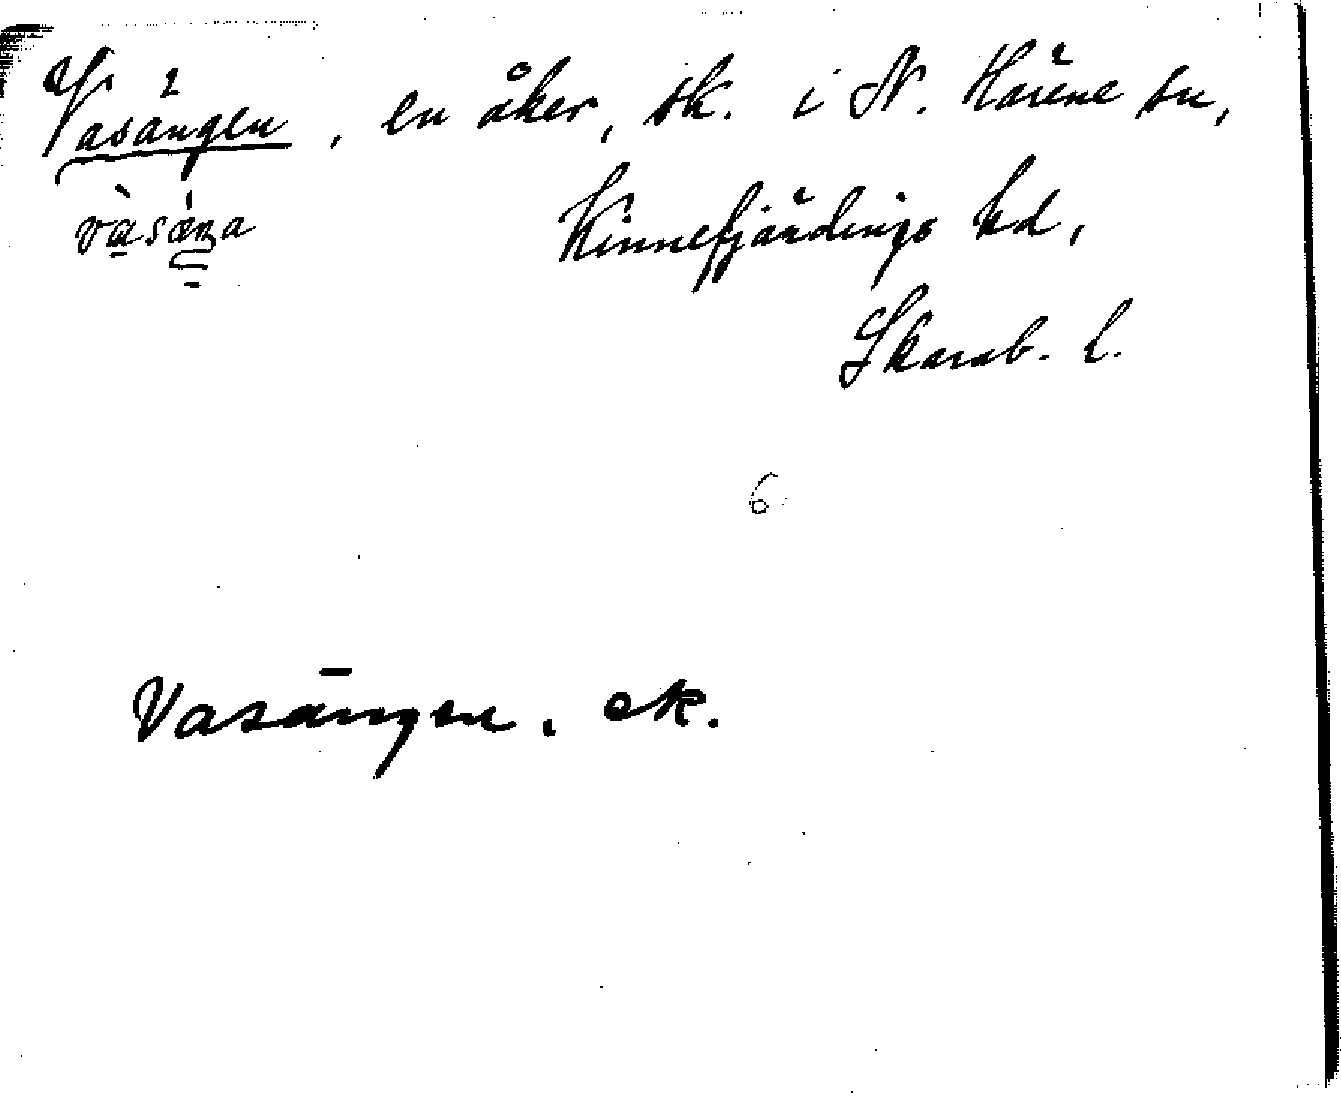 Vasängen, en åker, sk. i N. Härene sn,
Kinnefjärdings hd,
Skarab. L.
6
Vasängen. ek.